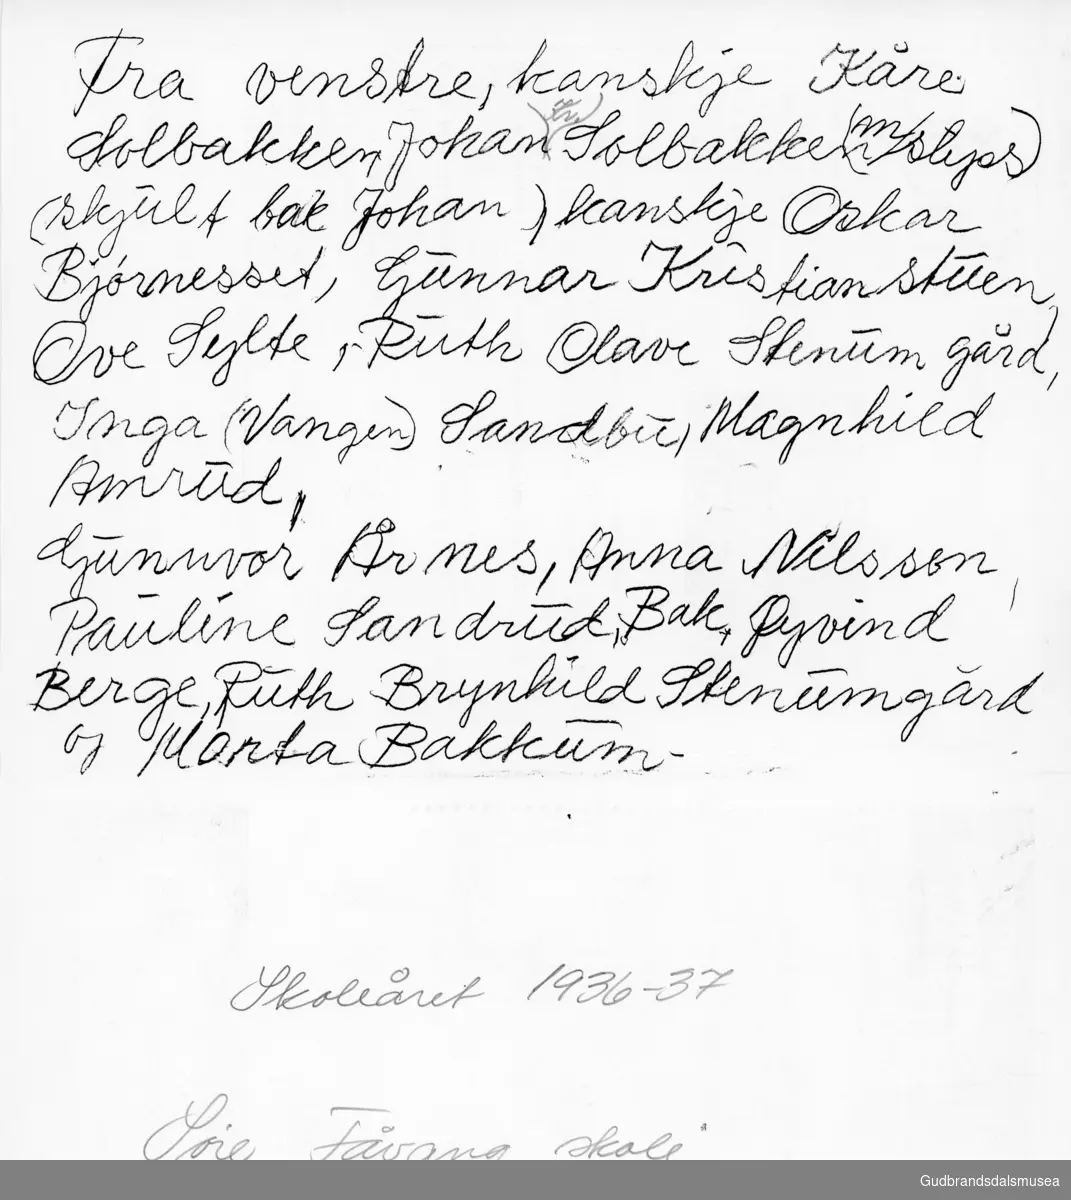 Fra venstre, kanskje Kåre
Solbakken, Johan Solbakken (m/slips)
(skjult bak Johan), kanskje Oskar
Bjørnesset, Gunnar Kristianstuen,
Ove Sylte, Ruth Olave Stenumgård,
Inga (Vangen) Sandbu, Magnhild
Amrud,
Gunnvor Årnes, Anna Nilsson,
Pauline Sandrud, Bak, Øyvind
Berge, Ruth Brynhild Stenumgård
og Marta Bakkum-
Skoleåret 1936-37
Søre Fåvang skole
Gudbrandsdalsmusea